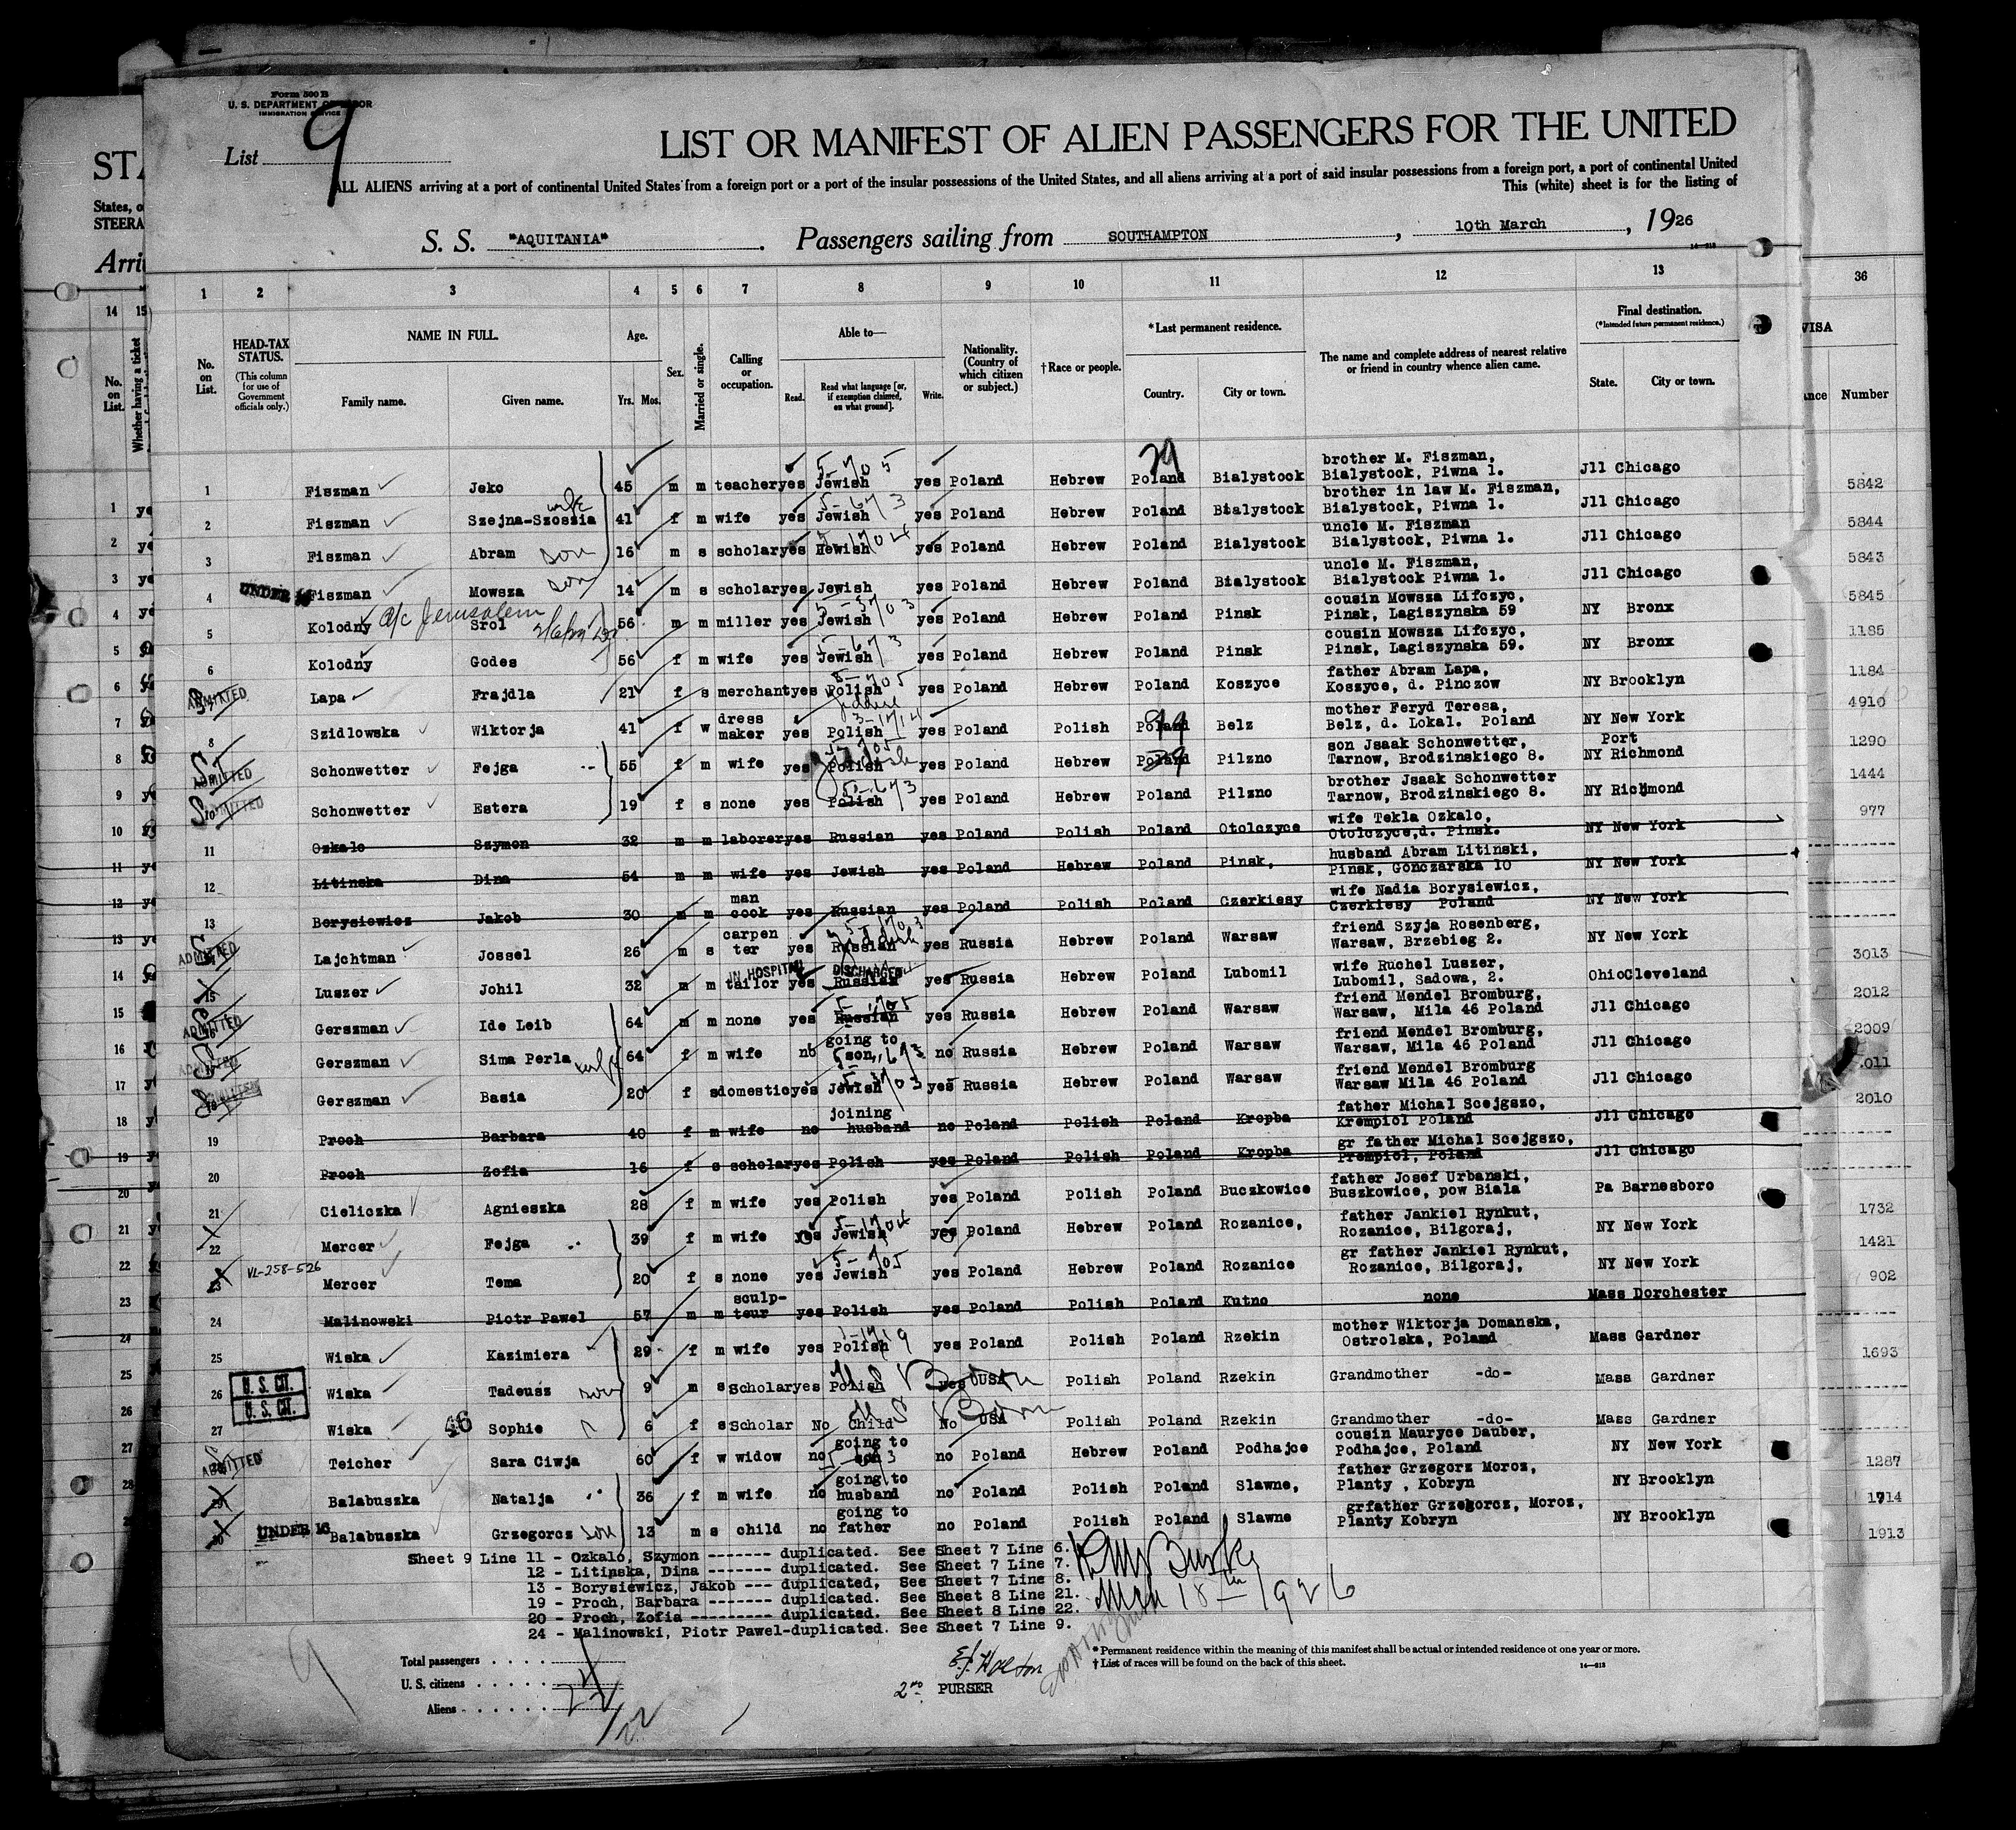 Form 500 B
U. S. DEPARTMENT OF LABOR
IMMIGRATION SERVICE
List 9
LIST OR MANIFEST OF ALIEN PASSENGERS FOR THE UNITED
ALL ALIENS arriving at a port of continental United States from a foreign port or a port of the insular possessions of the United States, and all aliens arriving at a port of said insular possessions from a foreign port, a port of continental United
This (white) sheet is for the listing of
S. S. "AQUITANIA". Passengers sailing from SOUTHAMPTON, 10th March, 1926
1 2 3 4 5 6 7 8 9 10 11 12 13
No. on List.
HEAD-TAX STATUS. (This column for use of Government officials only.)
NAME IN FULL.
Family name. Given name.
Age. Yrs. Mos.
Sex.
Married or single.
Calling or occupation.
Able to—
Read. Read what language [or, if exemption claimed, on what ground]. Write.
Nationality. (Country of which citizen or subject.)
† Race or people.
*Last permanent residence.
Country. City or town.
The name and complete address of nearest relative or friend in country whence alien came.
Final destination. (*Intended future permanent residence.)
State. City or town.
1 Fiszman Jeko 45 m m teacher yes Jewish yes Poland Hebrew Poland Bialystock brother M. Fiszman, Bialystock, Piwna 1. Jll Chicago 5842
2 Fiszman Szejna-Szossia wife 41 f m wife yes Jewish yes Poland Hebrew Poland Bialystock brother in law M. Fiszman, Bialystock, Piwna 1. Jll Chicago 5844
3 Fiszman Abram son 16 m s scholar yes Hewish yes Poland Hebrew Poland Bialystock uncle M. Fiszman Bialystock, Piwna 1. Jll Chicago 5843
4 UNDER 16 Fiszman Mowsza son 14 m s scholar yes Jewish yes Poland Hebrew Poland Bialystock uncle M. Fiszman, Bialystock Piwna 1. Jll Chicago 5845
5 Kolodny a/c Jerusalem Srol 56 m m miller yes Jewish yes Poland Hebrew Poland Pinsk cousin Mowsza Lifczyc, Pinsk, Lagiszynska 59 NY Bronx 1185
6 Kolodny Godes 56 f m wife yes Jewish yes Poland Hebrew Poland Pinsk cousin Mowsza Lifczyc, Pinsk, Lagiszynska 59. NY Bronx 1184
ADMITTED Lapa Frajdla 21 f s merchant yes Polish yes Poland Hebrew Poland Koszyce father Abram Lapa, Koszyce, d. Pinczow NY Brooklyn 4910
8 Szidlowska Wiktorja 41 f w dress maker yes Polish yes Poland Polish Poland Belz mother Feryd Teresa, Belz, d. Lokal. Poland NY New York 1290
ADMITTED Schonwetter Fejga 55 f m wife yes Polish yes Poland Hebrew Poland Pilzno son Jsaak Schonwetter, Tarnow, Brodzinskiego 8. NY Port Richmond 1444
10 ADMITTED Schonwetter Estera 19 f s none yes Polish yes Poland Hebrew Poland Pilzno brother Jsaak Schonwetter Tarnow, Brodzinskiego 8. NY Richmond 977
11 Ozkalo Szymon 32 m m laborer yes Russian yes Poland Polish Poland Otolczyce wife Tekla Ozkalo, Otolczyce,d. Pinsk. NY New York
12 Litinska Dina 54 m m wife yes Jewish yes Poland Hebrew Poland Pinsk, husband Abram Litinski, Pinsk, Gonczarska 10 NY New York
13 Borysiewicz Jakob 30 m m man cook yes Russian yes Poland Polish Poland Czerkiesy wife Nadia Borysiewicz, Czerkiesy Poland NY New York
ADMITTED Lajchtman Jossel 26 m s carpen ter yes Russian yes Russia Hebrew Poland Warsaw friend Szyja Rosenberg, Warsaw, Brzebieg 2. NY New York 3013
15 Luszer Johil 32 m m IN HOSPITAL DISCHARGED tailor yes Russian yes Russia Hebrew Poland Lubomil wife Ruchel Luszer, Lubomil, Sadowa, 2. Ohio Cleveland 2012
ADMITTED Gerszman Ide Leib 64 m m none yes Russian yes Russia Hebrew Poland Warsaw friend Mendel Bromburg, Warsaw, Mila 46 Poland Jll Chicago 2009
ADMITTED Gerszman Sima Perla wife 64 f m wife no going to son, no Russia Hebrew Poland Warsaw friend Mendel Bromburg, Warsaw, Mila 46 Poland Jll Chicago 2011
18 ADMITTED Gerszman Basia 20 f s domestic yes Jewish yes Russia Hebrew Poland Warsaw friend Mendel Bromburg Warsaw Mila 46 Poland Jll Chicago 2010
19 Proch Barbara 40 f m wife no joining husband no Poland Polish Poland Kropba father Michal Scejgszo, Krempiol Poland Jll Chicago
20 Proch Zofia 16 f s scholar yes Polish yes Poland Polish Poland Kropba gr father Michal Scejgszo, Prempiol, Poland Jll Chicago
21 Cieliczka Agnieszka 28 f m wife yes Polish yes Poland Polish Poland Buczkowice father Josef Urbanski, Buszkowice, pow Biala Pa Barnesboro 1732
22 Mercer Fejga 39 f m wife yes Jewish yes Poland Hebrew Poland Rozanice, father Jankiel Rynkut, Rozanice, Bilgoraj, NY New York 1421
23 VL-258-526 Mercer Tema 20 f s none yes Jewish yes Poland Hebrew Poland Rozanice gr father Jankiel Rynkut, Rozanice, Bilgoraj, NY New York 902
24 Malinowski Piotr Pawel 57 m m sculp- teur yes Polish yes Poland Polish Poland Kutno none Mass Dorchester
25 Wiska Kazimiera 29 f m wife yes Polish yes Poland Polish Poland Rzekin mother Wiktorja Domanska, Ostrolska, Poland Mass Gardner 1693
26 U. S. CIT. Wiska Tadeusz son 9 m s Scholar yes Polish yes USA U S Born Polish Poland Rzekin Grandmother -do- Mass Gardner
27 U. S. CIT. Wiska 46 Sophie 6 f s Scholar No Child No USA U S Born Polish Poland Rzekin Grandmother -do- Mass Gardner
ADMITTED Teicher Sara Ciwja 60 f w widow no going to son no Poland Hebrew Poland Podhajce cousin Mauryce Dauber, Podhajce, Poland NY New York 1287
29 Balabuszka Natalja 36 f m wife no going to husband no Poland Polish Poland Slawne, father Grzegorz Moroz, Planty , Kobryn NY Brooklyn 1714
30 UNDER 16 Balabuszka Grzegorcz son 13 m s child no going to father no Poland Polish Poland Slawne grfather Grzegorcz, Moroz, Planty Kobryn NY Brooklyn 1913
Sheet 9 Line 11 - Ozkalo, Szymon ------- duplicated. See Sheet 7 Line 6.
12 - Litinska, Dina ------- duplicated. See Sheet 7 Line 7.
13 - Borysiewicz, Jakob --- duplicated, See Sheet 7 Line 8.
19 - Proch, Barbara ------- duplicated. See Sheet 8 Line 21.
20 - Proch, Zofia --------- duplicated. See Sheet 8 Line 22.
24 - Malinowski, Piotr Pawel-duplicated. See Sheet 7 Line 9.
18th 1926
Total passengers
U. S. citizens
Aliens 22
2nd PURSER
* Permanent residence within the meaning of this manifest shall be actual or intended residence of one year or more.
† List of races will be found on the back of this sheet.
14—213